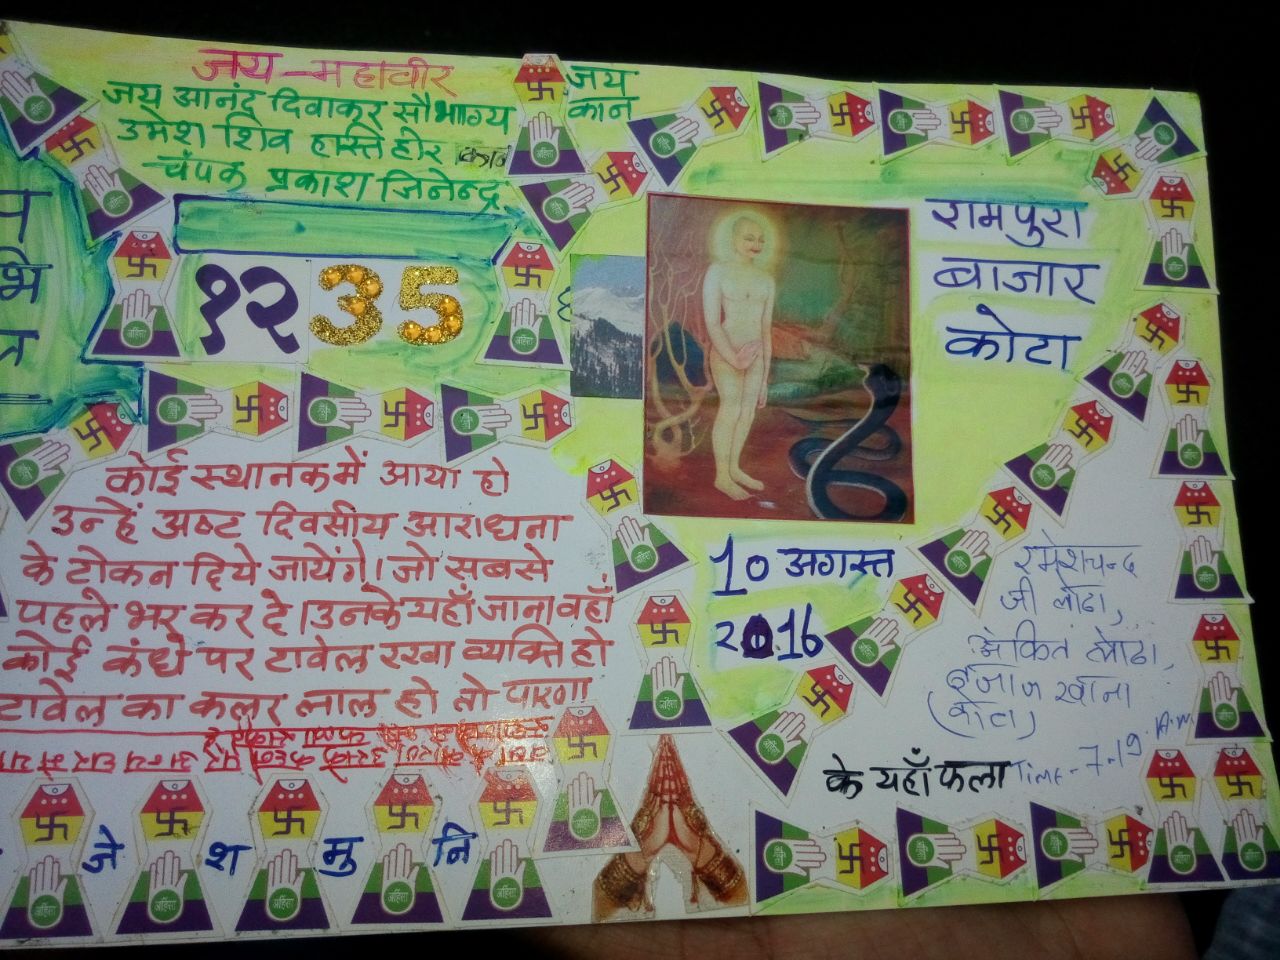 जय महावीर
जय आनंद दिवाकर सौभाग्य
उमेश शिव हस्ति हीर
चंपक प्रकाश जिनेन्द्र
जय
कान
१२३५
रामपुरा
बाजार
कोटा
कोई स्थानक में आया हो
उन्हें अष्ट दिवसीय आराधना
के टोकन दिये जायेंगे। जो सबसे
पहले भर कर दे। उनके यहाँ जाना वहाँ
कोई कंधे पर टावेल रखा व्यक्ति हो
टावेल का कलर लाल हो तो पारणा
10 अगस्त
2016
रमेशचन्द
जी लोढा,
अंकित लोढा,
बजाज खाना
(कोटा)
के यहाँ फला
Time - 7-19 A.M
जे श मु नि
अहिंसा